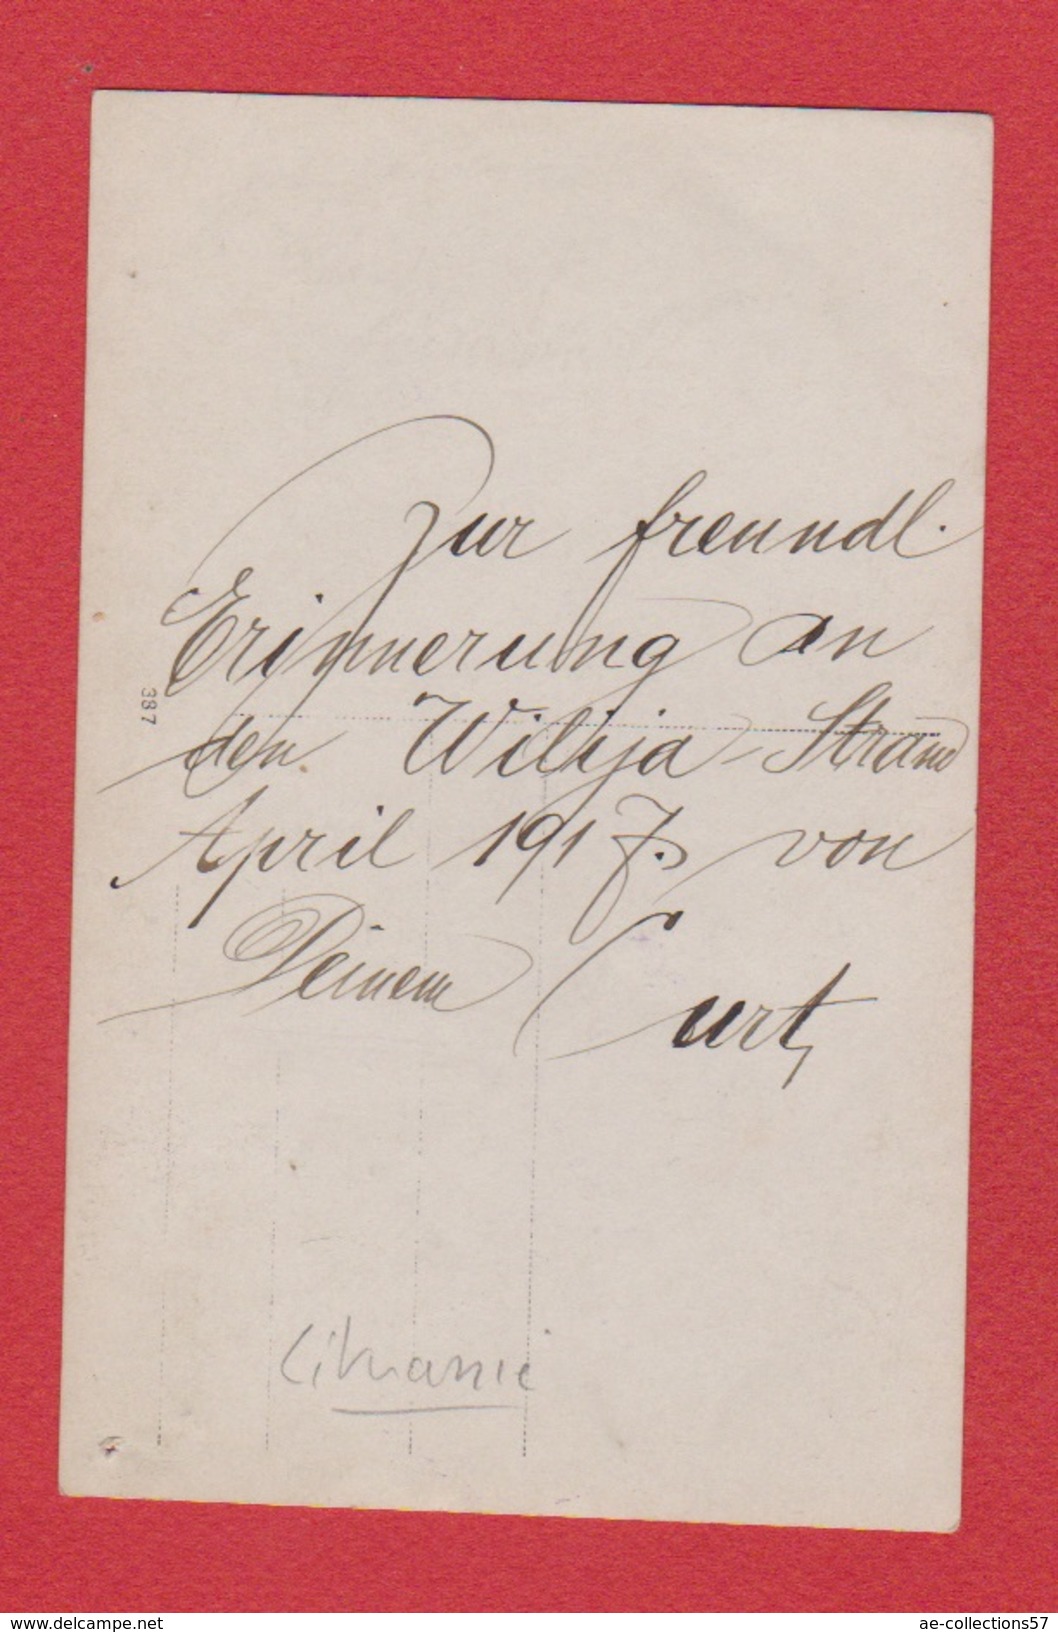 Zur freundl.
Erinnerung an
den Wilija-Strand
April 1917. von
Deinem Curt,
387
Lituanie
www.delcampe.net
ae-collections57